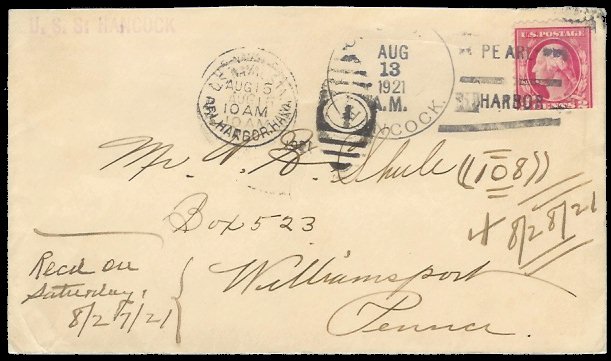 U. S. S. HANCOCK
AUG 15
10 AM
PEARL HARBOR, HAWAII
AUG
13
1921
A.M.
HANCOCK.
PEARL
HARBOR
U.S. POSTAGE
Mr.
((108))
Box 523
Williamsport
Penna.
8/28/21
Rec'd on
Saturday,
8/27/21